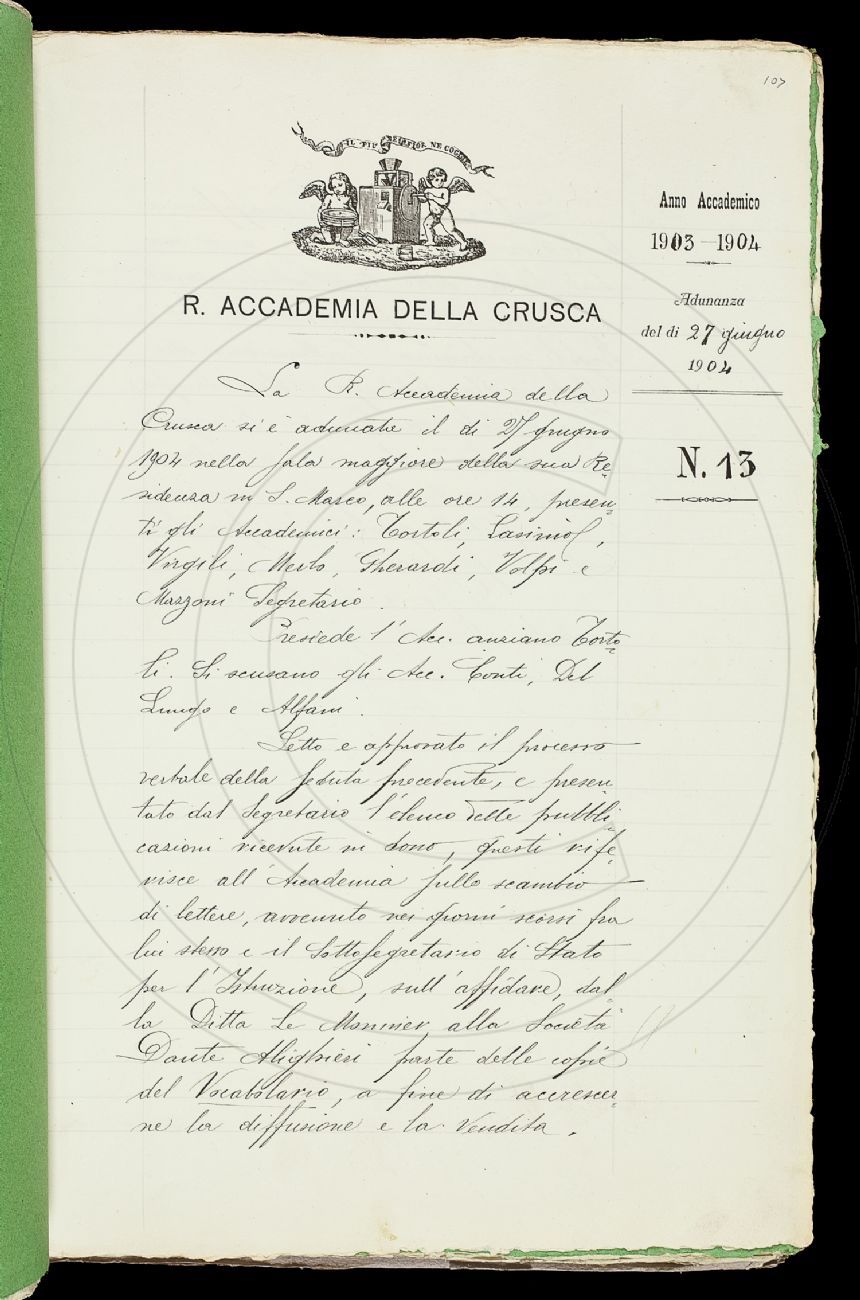 107
IL PIÙ BEL FIOR NE COGLIE
R. ACCADEMIA DELLA CRUSCA
Anno Accademico
1903-1904
Adunanza
del dì 27 giugno
1904
N. 13
La R. Accademia della
Crusca si è adunata il dì 27 giugno
1904 nella sala maggiore della sua Re-
sidenza in S. Marco, alle ore 14, presen-
ti gli Accademici: Tortoli, Lasinio,
Virgili, Merlo, Gherardi, Volpi e
Mazzoni Segretario.
Presiede l'Acc. anziano Torto-
li. Si scusano gli Acc. Conti, Del
Lungo e Alfani.
Letto e approvato il processo
verbale della seduta precedente, e presen-
tato dal Segretario l'elenco delle pubbli-
cazioni ricevute in dono, questi rife-
risce all'Accademia sullo scambio
di lettere, avvenuto nei giorni scorsi fra
lui stesso e il Sottosegretario di Stato
per l'Istruzione, sull'affidare, dal-
la Ditta Le Monnier, alla Società
Dante Alighieri parte delle copie
del Vocabolario, a fine di accrescer-
ne la diffusione e la vendita.